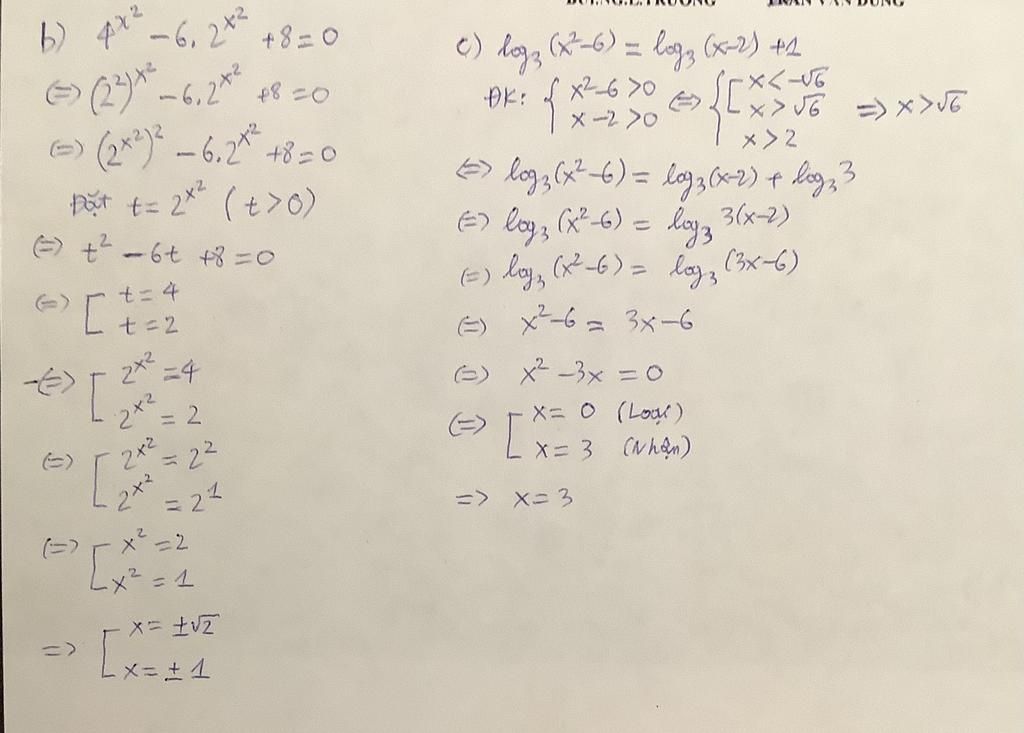 TRẦN VĂN DŨNG
b) 4^{x^2} - 6.2^{x^2} + 8 = 0
(=) (2^2)^{x^2} - 6.2^{x^2} + 8 = 0
(=) (2^{x^2})^2 - 6.2^{x^2} + 8 = 0
Đặt t = 2^{x^2} (t > 0)
(=) t^2 - 6t + 8 = 0
(=) [ t = 4
t = 2
(=) [ 2^{x^2} = 4
2^{x^2} = 2
(=) [ 2^{x^2} = 2^2
2^{x^2} = 2^1
(=) [ x^2 = 2
x^2 = 1
=> [ x = ±√2
x = ± 1
c) log_3 (x^2-6) = log_3 (x-2) + 1
ĐK: { x^2-6 > 0 <=> { [ x < -√6
x - 2 > 0 x > √6 => x > √6
x > 2
<=> log_3 (x^2-6) = log_3 (x-2) + log_3 3
(=) log_3 (x^2-6) = log_3 3(x-2)
(=) log_3 (x^2-6) = log_3 (3x-6)
(=) x^2-6 = 3x-6
(=) x^2 - 3x = 0
(=) [ x = 0 (Loại)
x = 3 (Nhận)
=> x = 3